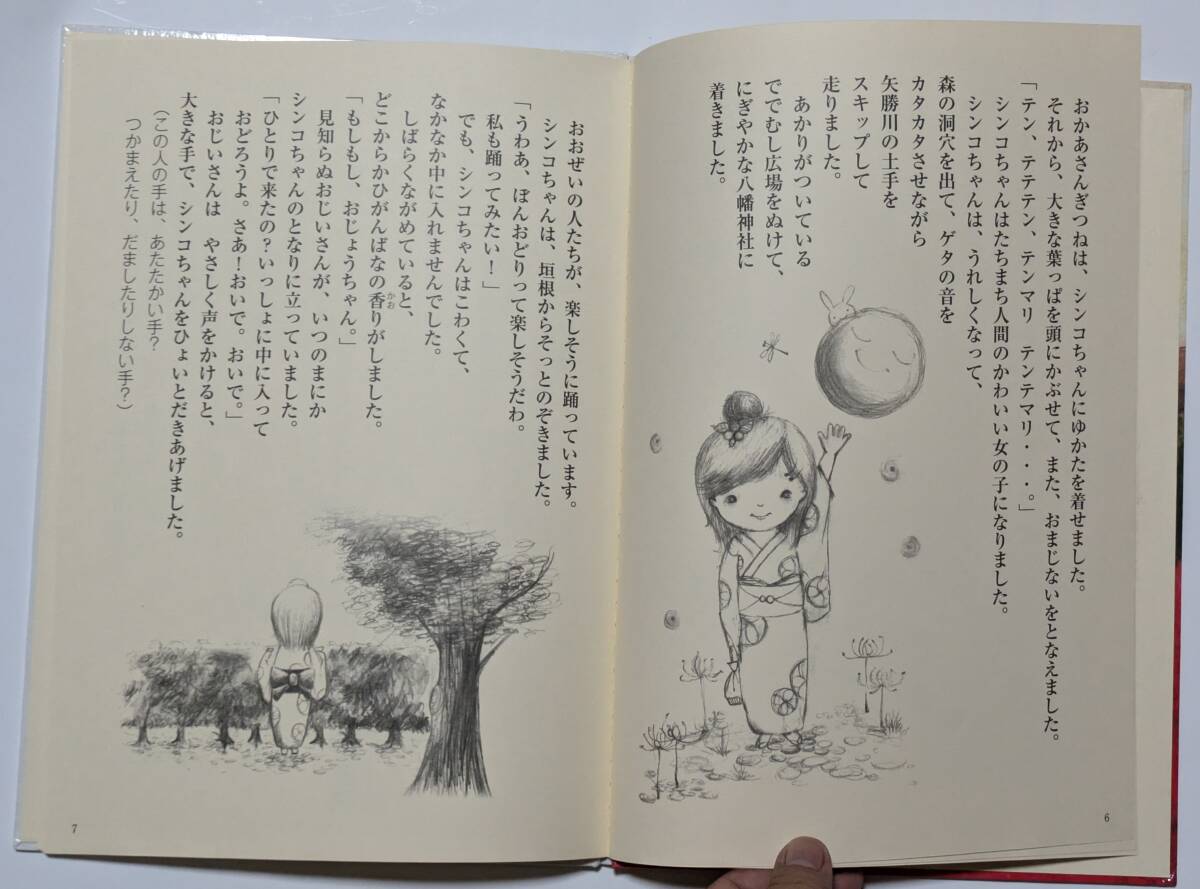 おかあさんぎつねは、シンコちゃんにゆかたを着せました。
それから、大きな葉っぱを頭にかぶせて、また、おまじないをとなえました。
「テン、テテテン、テンマリ　テンテマリ・・・。」
シンコちゃんはたちまち人間のかわいい女の子になりました。
シンコちゃんは、うれしくなって、
森の洞穴を出て、ゲタの音を
カタカタさせながら
矢勝川の土手を
スキップして
走りました。
あかりがついている
ででむし広場をぬけて、
にぎやかな八幡神社に
着きました。
6
おおぜいの人たちが、楽しそうに踊っています。
シンコちゃんは、垣根からそっとのぞきました。
「うわあ、ぼんおどりって楽しそうだわ。
私も踊ってみたい！」
でも、シンコちゃんはこわくて、
なかなか中に入れませんでした。
しばらくながめていると、
どこからかひがんばなの香(かお)りがしました。
「もしもし、おじょうちゃん。」
見知らぬおじいさんが、いつのまにか
シンコちゃんのとなりに立っていました。
「ひとりで来たの？いっしょに中に入って
おどろうよ。さあ！おいで。おいで。」
おじいさんは　やさしく声をかけると、
大きな手で、シンコちゃんをひょいとだきあげました。
（この人の手は、あたたかい手？
つかまえたり、だましたりしない手？）
7